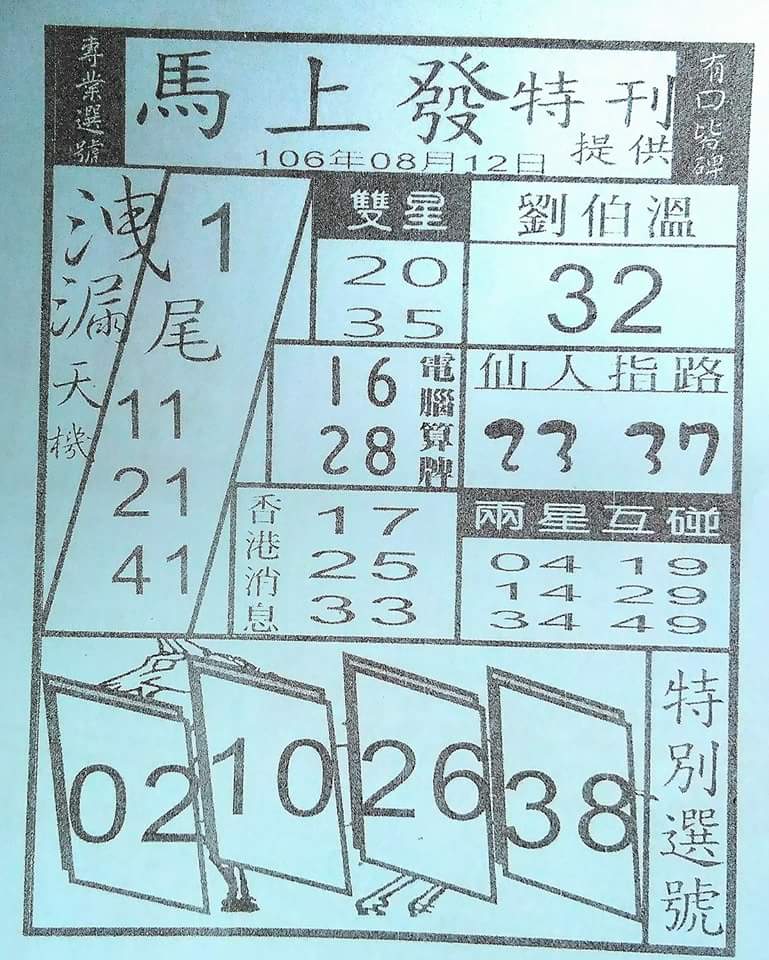 專業選號
馬上發特刊
提供
106年08月12日
有口皆碑
洩漏天機
1
尾
11
21
41
雙星
20
35
劉伯溫
32
16
28
電腦算牌
仙人指路
23 37
香港消息
17
25
33
兩星互碰
04 19
14 29
34 49
02 10 26 38
特別選號